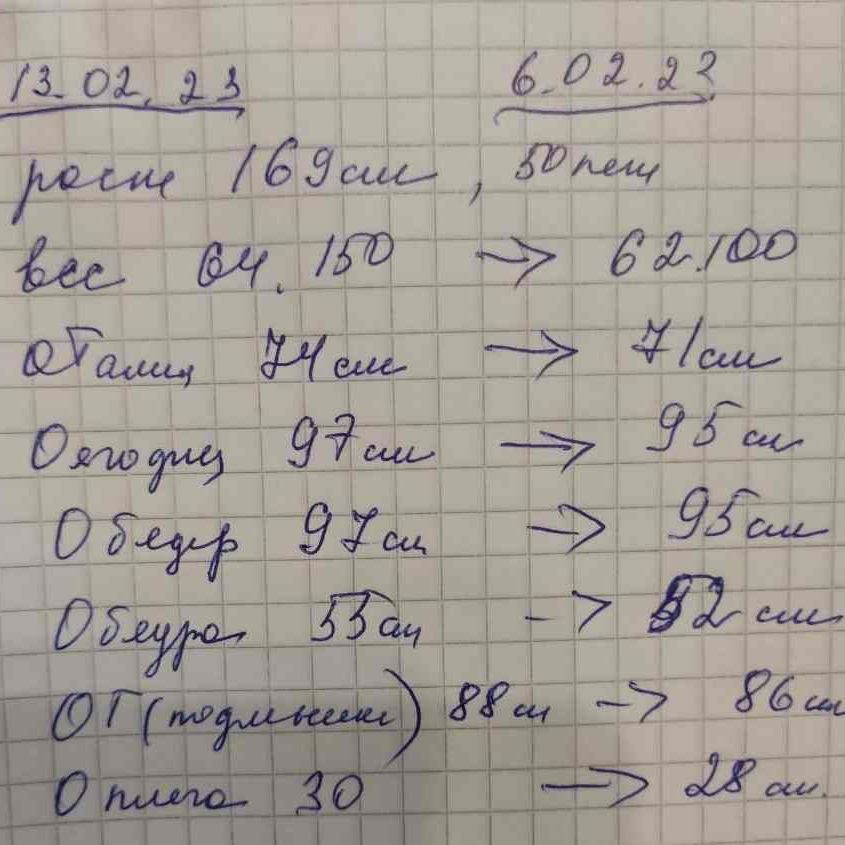 13.02.23 6.02.23
рост 169см, 50лет
вес 64.150 → 62.100
ОТалиц 74см → 71см
Оягодиц 97см → 95см
Обедер 97см → 95см
Обедра 55см → 52см
ОГ(подмышки) 88см → 86см
Оплеча 30 → 28см.